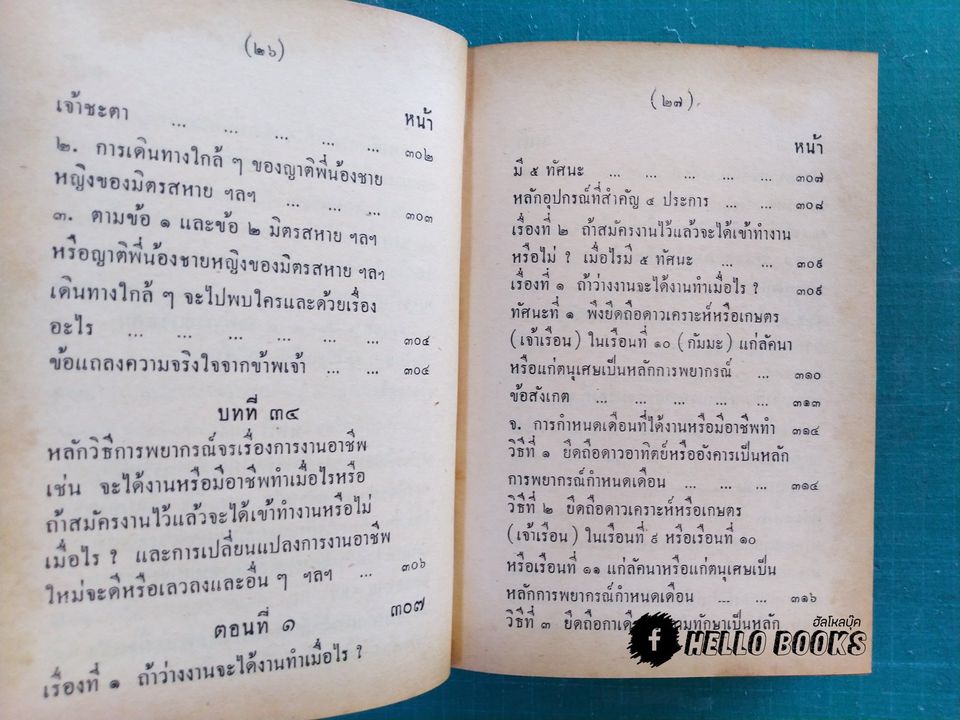 (๒๖)
หน้า
เจ้าชะตา ... ... ... ... ... ๓๐๒
๒. การเดินทางใกล้ ๆ ของญาติพี่น้องชาย
หญิงของมิตรสหาย ฯลฯ ... ... ... ๓๐๓
๓. ตามข้อ ๑ และข้อ ๒ มิตรสหาย ฯลฯ
หรือญาติพี่น้องชายหญิงของมิตรสหาย ฯลฯ
เดินทางใกล้ ๆ จะไปพบใครและด้วยเรื่อง
อะไร ... ... ... ... ... ... ๓๐๔
ข้อแถลงความจริงใจจากข้าพเจ้า ... ... ๓๐๔
บทที่ ๓๔
หลักวิธีการพยากรณ์จรเรื่องการงานอาชีพ
เช่น จะได้งานหรือมีอาชีพทำเมื่อไรหรือ
ถ้าสมัครงานไว้แล้วจะได้เข้าทำงานหรือไม่
เมื่อไร ? และการเปลี่ยนแปลงการงานอาชีพ
ใหม่จะดีหรือเลวลงและอื่น ๆ ฯลฯ ... ๓๐๖
ตอนที่ ๑ ๓๐๗
เรื่องที่ ๑ ถ้าว่างงานจะได้งานทำเมื่อไร ?
(๒๗)
หน้า
มี ๕ ทัศนะ ... ... ... ... ... ๓๐๗
หลักอุปกรณ์ที่สำคัญ ๔ ประการ ... ... ๓๐๘
เรื่องที่ ๒ ถ้าสมัครงานไว้แล้วจะได้เข้าทำงาน
หรือไม่ ? เมื่อไรมี ๕ ทัศนะ ... ... ๓๐๙
เรื่องที่ ๑ ถ้าว่างงานจะได้งานทำเมื่อไร ? ๓๐๙
ทัศนะที่ ๑ พึงยึดถือดาวเคราะห์หรือเกษตร
(เจ้าเรือน) ในเรือนที่ ๑๐ (กัมมะ) แก่ลัคนา
หรือแก่ตนุเศษเป็นหลักการพยากรณ์ ... ๓๑๐
ข้อสังเกต ... ... ... ... ... ๓๑๓
จ. การกำหนดเดือนที่ได้งานหรือมีอาชีพทำ ๓๑๔
วิธีที่ ๑ ยึดถือดาวอาทิตย์หรืออังคารเป็นหลัก
การพยากรณ์กำหนดเดือน ... ... ... ๓๑๔
วิธีที่ ๒ ยึดถือดาวเคราะห์หรือเกษตร
(เจ้าเรือน) ในเรือนที่ ๙ หรือเรือนที่ ๑๐
หรือเรือนที่ ๑๑ แก่ลัคนาหรือแก่ตนุเศษเป็น
หลักการพยากรณ์กำหนดเดือน ... ... ๓๑๖
วิธีที่ ๓ ยึดถือ ทักษาเป็นหลัก
ฮัลโหลบุ๊ค
f HELLO BOOKS